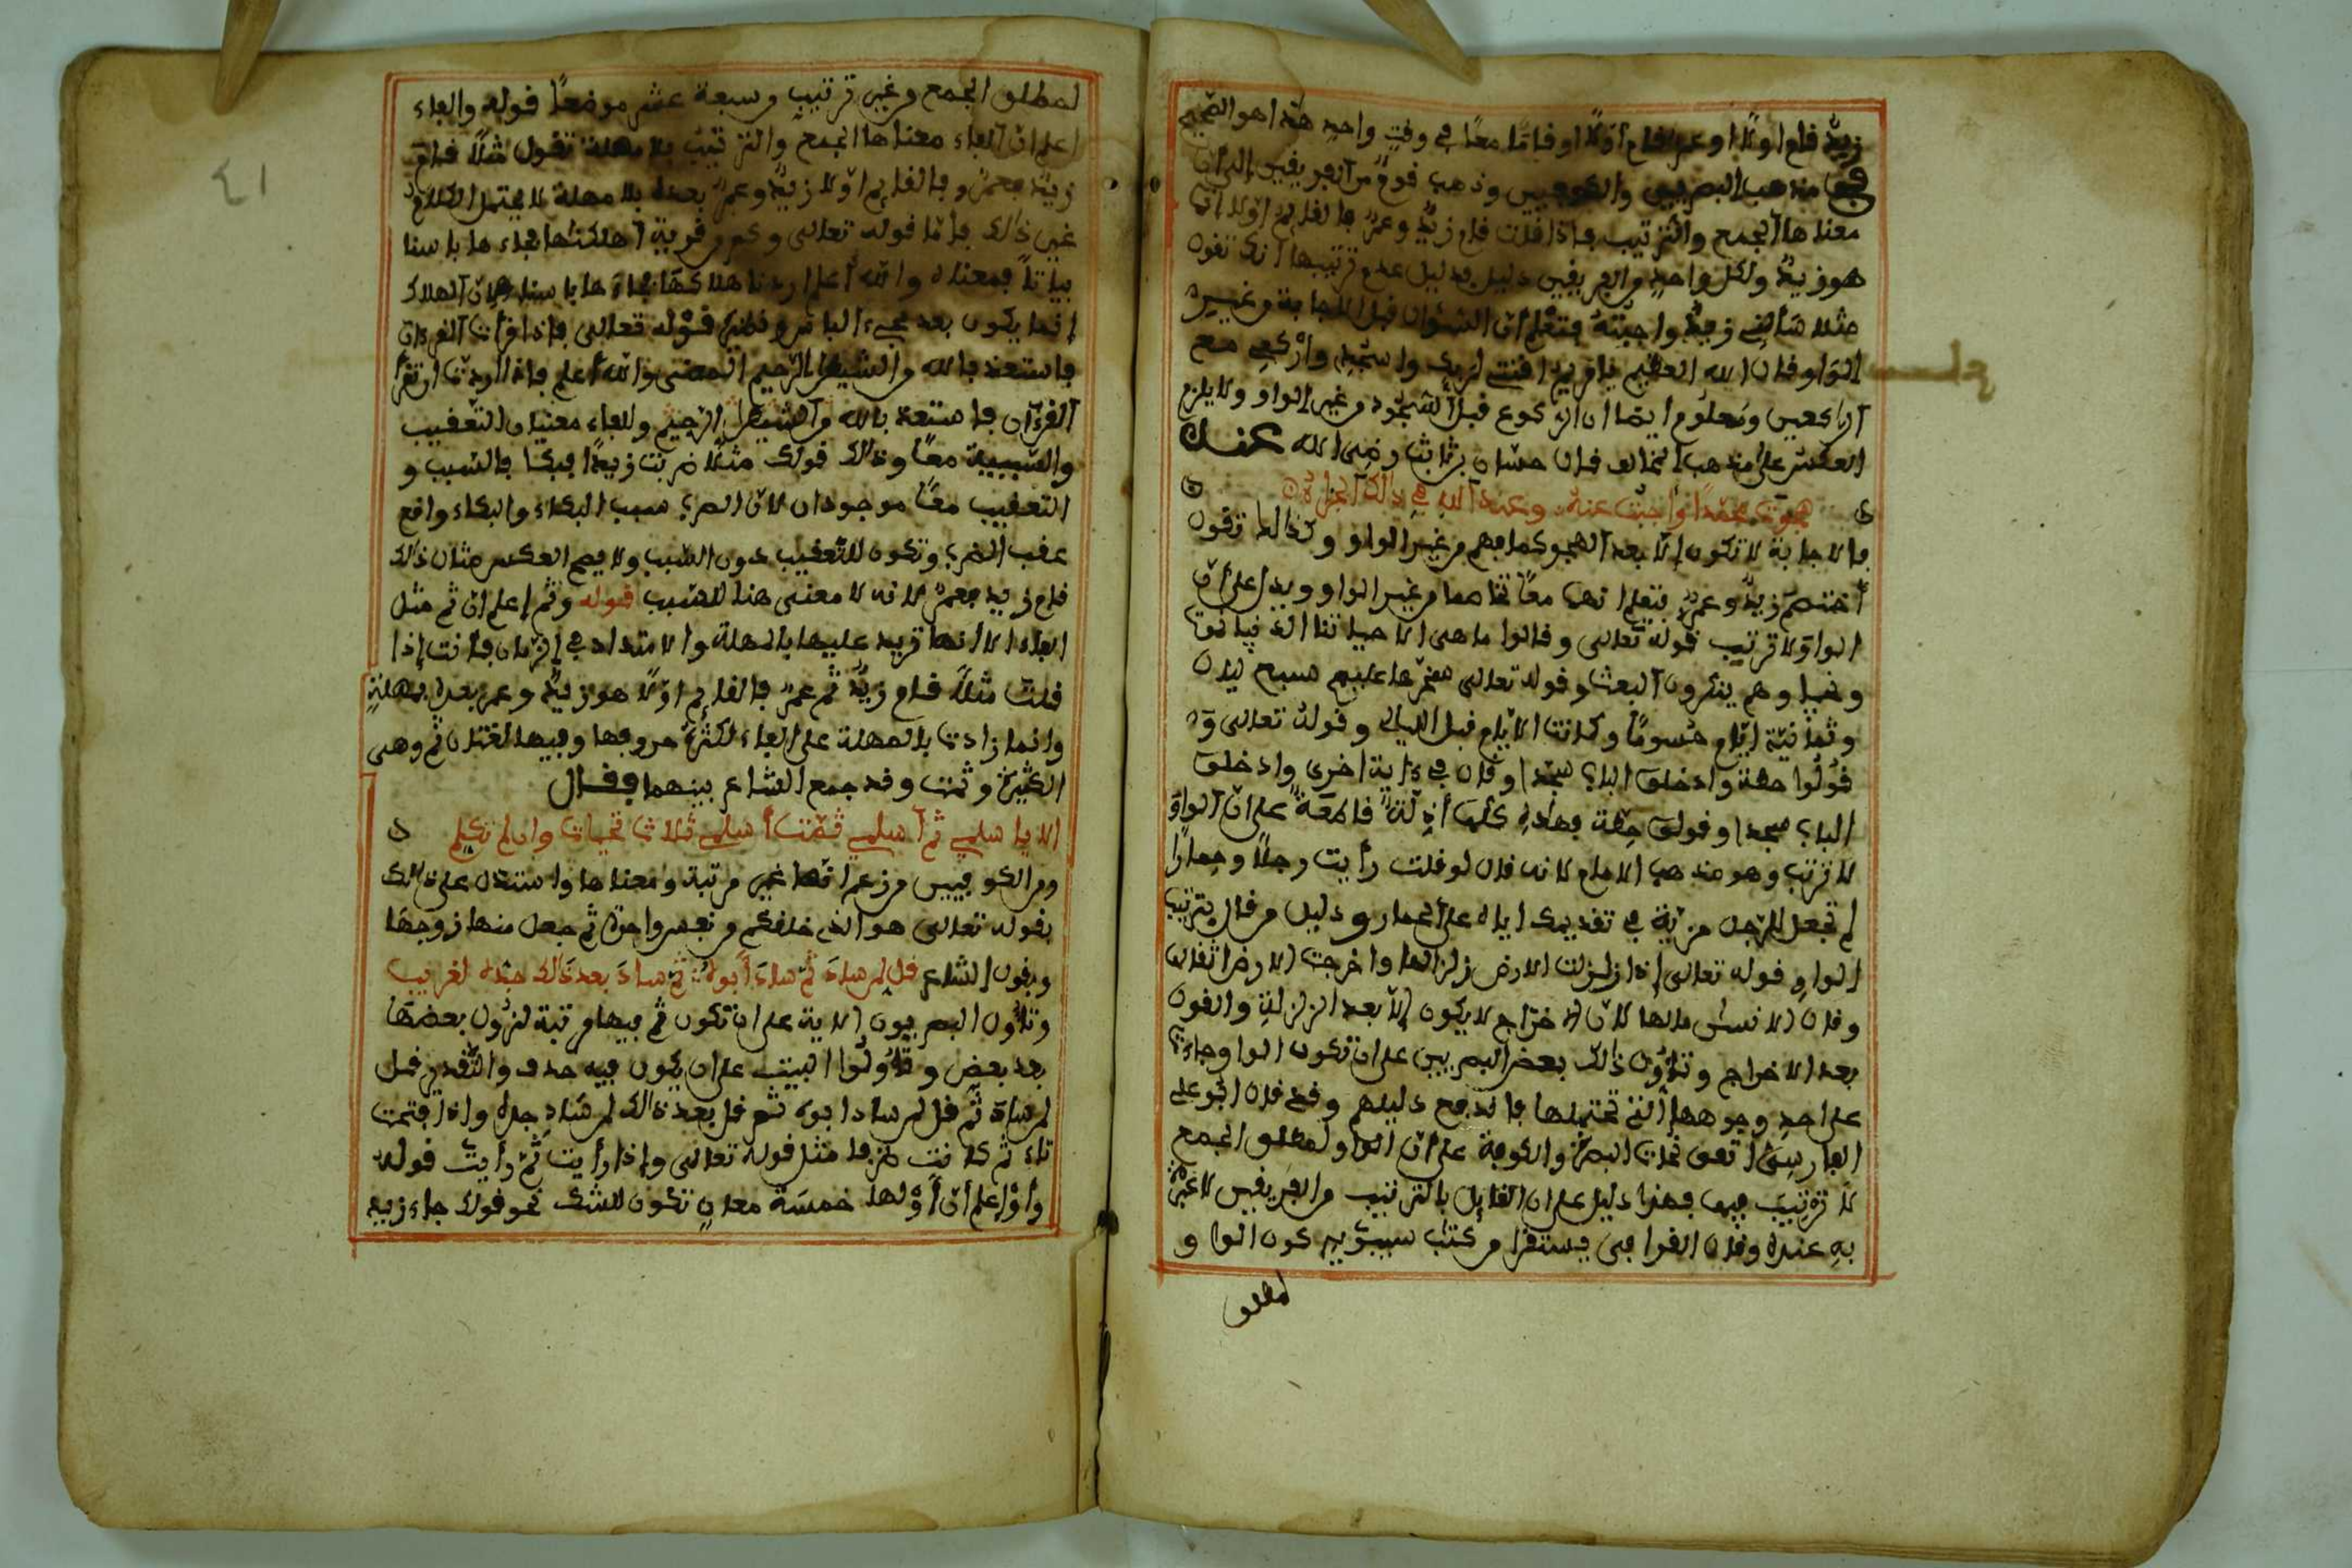 زيدٌ قام اولا او عمرٌ قام اوّلا او قاما معًا في وقتٍ واحدٍ هذا هو الصّحيح
مذهب البصريين والكوفيين وذهب قومٌ من الفريقين الى أنّ
معناها الجمع والترتيب فاذا قلت قام زيدٌ وعمرٌ فالقايم اوّلا
هو زيدٌ ولكل واحدٍ من الفريقين دليل فدليل عدم ترتيبها أنّك تقول
مثلا سَألني زيدٌ واجبْتُهُ فتعْلم أنّ السُؤال قبل الاجابة من غيـر
الوَاو قال الله العظيم يا مريم اقنتي لربك واسْجُدِي وارْكعِي مع
الراكعين ومَعلُوم ايضا ان الركوع قبل السّجُود من غير الواو ولا يلزم
العكس على مذهب المخالف قال حسّان بن ثابث رضي الله عنـه
هجَوْتَ محمّدًا وَاجبْتُ عنهُ وعندَ اللهِ في ذاك الجزاءُ
فالاجابة لا تكون إلّا بعد الهجو كما فهم من غير الواو وكذالك تقول
أختصم زيدٌ وعمرٌ فتعلم انهما معًا تخاصما من غير الواو ويدل على أنّ
الواوَ لا ترتيب قوله تعالى وقالوا ما هي الا حياتنا الدنيا نمُوت
ونحيا وهم ينكرون البعث وقوله تعالى سخّرها عليهم سبع ليال
وثمَانيَة ايّام حُسومًا وكانت الايّام قبل الليالي وقولهُ تعالى وَ
قُولُوا حطة وادخلوا الباب سجّدا وقال في ءاية اخرى وادخلوا
الباب سجدا وقولوا حِطّة فهاذهِ كلّها أدِلّةٌ قاطعَةٌ على أنّ الواوَ
لا ترتب وهو مذهب الامام لانه قال لو قلت رأيت رجلًا وحِمارًا
لم تجعل للرّجل مزيّة في تقديمك اياه على الحمار ودليل من قال بترتيب
الواوِ قوله تعالى إذا زلزلت الارض زلزالها واخرجت الارض اثقالها
وقال الانسان مالها لأنّ الاخرَاج لا يكون إلّا بعد الزلزلةِ والقول
بعد الاخراج وتأوّل ذلك بعض البصريين على ان تكون الواو جاءت
على احدِ وجوهها التي تحتملها فاندفع دليلهم وقد قال ابُو علي
الفارسِيّ اتفق نحاة البصرَة والكوفة على أنّ الواو لمطلق الجمع
لا ترتِيبَ فيها فهذا دليل على ان القايل بالترتيب من الفَريقين لا عبْرة
بهِ عنده وقال القرافي يستقرا من كتاب سيبوَيه كون الوا و
لمطلق
لمطلق الجمع من غير ترتيبٍ في سبعة عشر موضعاً قوله والفاء
اعلم انّ الفاء معناها الجمع والترتيب بلا مهلة تقول مثلًا قام
زيدٌ فعمرٌ فالقايم اوّلا زيدٌ وعمرٌ بعده بلا مهلة لا يحتمل الكلام
غير ذالك فأمّا قوله تعالى وكم من قريةٍ أهلكناها فجاءها باسنا
بياتاً فمعناه والله أعلم اردنا هلاكهَا فجاءَها باسنا لأن الهلاك
إنما يكون بعد مجيء الباس قوله تعالى فإذا قرأت القرءان
فاستعذ بالله من الشيطان الرّجيم المعنى واللهُ أعلم فاذا اردتّ ان تقرأ
القرءان فاستعذ بالله من الشيطان الرّجيم وللفاء معنيان التّعقيب
والسّببية معًا وذالك قولك مثلًا ضربت زيدًا فبكا فالسّبب و
التعقيب معًا موجودان لأنّ الضرب سبب البكاء والبكاء واقع
عقب الضرب وتكون للتعقيب دون السّبب ولا يصح العكس مثال ذلك
قام زيد فعمرٌ لانه لا معنى هنا للسّبب قوله وثم إعلم انّ ثم مثل
الفاء الا انها تزيد عليها بالمهلة والامتداد في الزمان فانت إذا
قلت مثلاً قام زيدٌ ثم عمرٌ فالقايم اوّلا هو زيدٌ وعمر بعده بمهلةٍ
وانما زادت بالمهلة على الفاء لكثرة حروفها وفيها لغتان ثم وهي
الكثيرة وثمت وقد جمع الشاعر بينهما فقــال
الا يا سلمي ثم آسلمي ثمّت أسلمي ثلاث تحيات وان لم تكلم
ومن الكوفيين من زعم انّها غير مرتبة ومعناها واستدل على ذالك
بقوله تعالى هو الذي خلقكم من نفس واحدة ثم جعل منها زوجهَا
وبقول الشاعر قل لمن سادَ ثُمّ سادَ أبوهُ ثمّ سادَ بعد ذالك جدّه لغريب
وتأوّل البصريون الاية على ان تكون ثم فيها مرتبة لنزُول بعضهَا
بعد بعض وتأوّلُوا البيت على ان يكون فيه حذف والتّقدير قل
لمن سَادَ ثُمّ قل لمن ساد ابوه ثم قل بعد ذالك لمن سَادَ جده واذا فتحت
ثاء ثم كانت ظرفا مثل قوله تعالى وإذا رأيت ثمَّ رأيت قوله
وأوْ إعلم أنّ أوْ لها خمسَة معانٍ تكون للشك نحو قولك جاء زيد